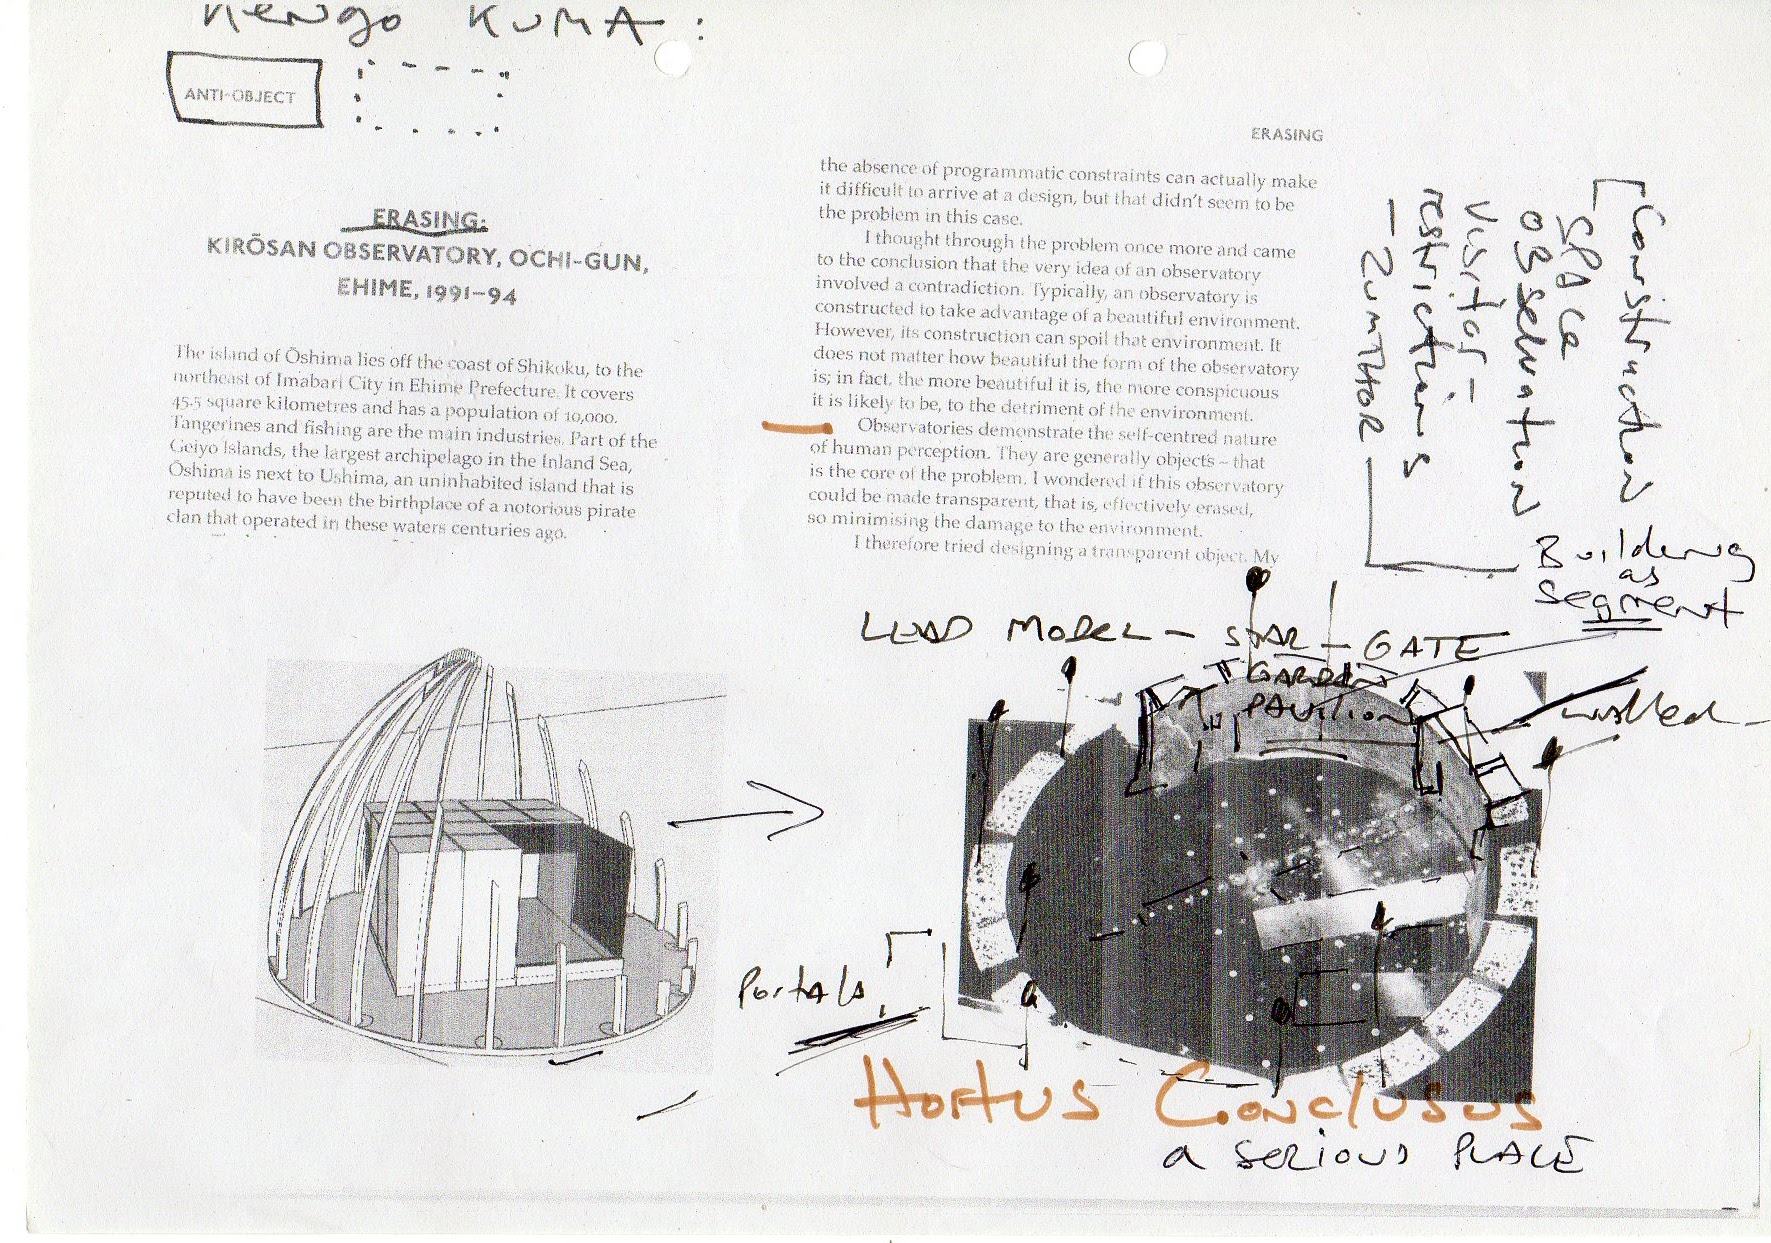 Kengo KUMA:
ANTI-OBJECT
ERASING:
KIRŌSAN OBSERVATORY, OCHI-GUN,
EHIME, 1991–94
The island of Ōshima lies off the coast of Shikoku, to the
northeast of Imabari City in Ehime Prefecture. It covers
45.5 square kilometres and has a population of 10,000.
Tangerines and fishing are the main industries. Part of the
Geiyo Islands, the largest archipelago in the Inland Sea,
Ōshima is next to Ushima, an uninhabited island that is
reputed to have been the birthplace of a notorious pirate
clan that operated in these waters centuries ago.
ERASING
the absence of programmatic constraints can actually make
it difficult to arrive at a design, but that didn't seem to be
the problem in this case.
I thought through the problem once more and came
to the conclusion that the very idea of an observatory
involved a contradiction. Typically, an observatory is
constructed to take advantage of a beautiful environment.
However, its construction can spoil that environment. It
does not matter how beautiful the form of the observatory
is; in fact, the more beautiful it is, the more conspicuous
it is likely to be, to the detriment of the environment.
Observatories demonstrate the self-centred nature
of human perception. They are generally objects – that
is the core of the problem. I wondered if this observatory
could be made transparent, that is, effectively erased,
so minimising the damage to the environment.
I therefore tried designing a transparent object. My
Construction
SPACE
OBSERVATION
Visitor –
restrictions
– ZUMTHOR
Building
as
segment
LEAD MODEL – STAR – GATE
GARDEN
PAVILION
walled –
Portals
Hortus Conclusus
a SERIOUS PLACE